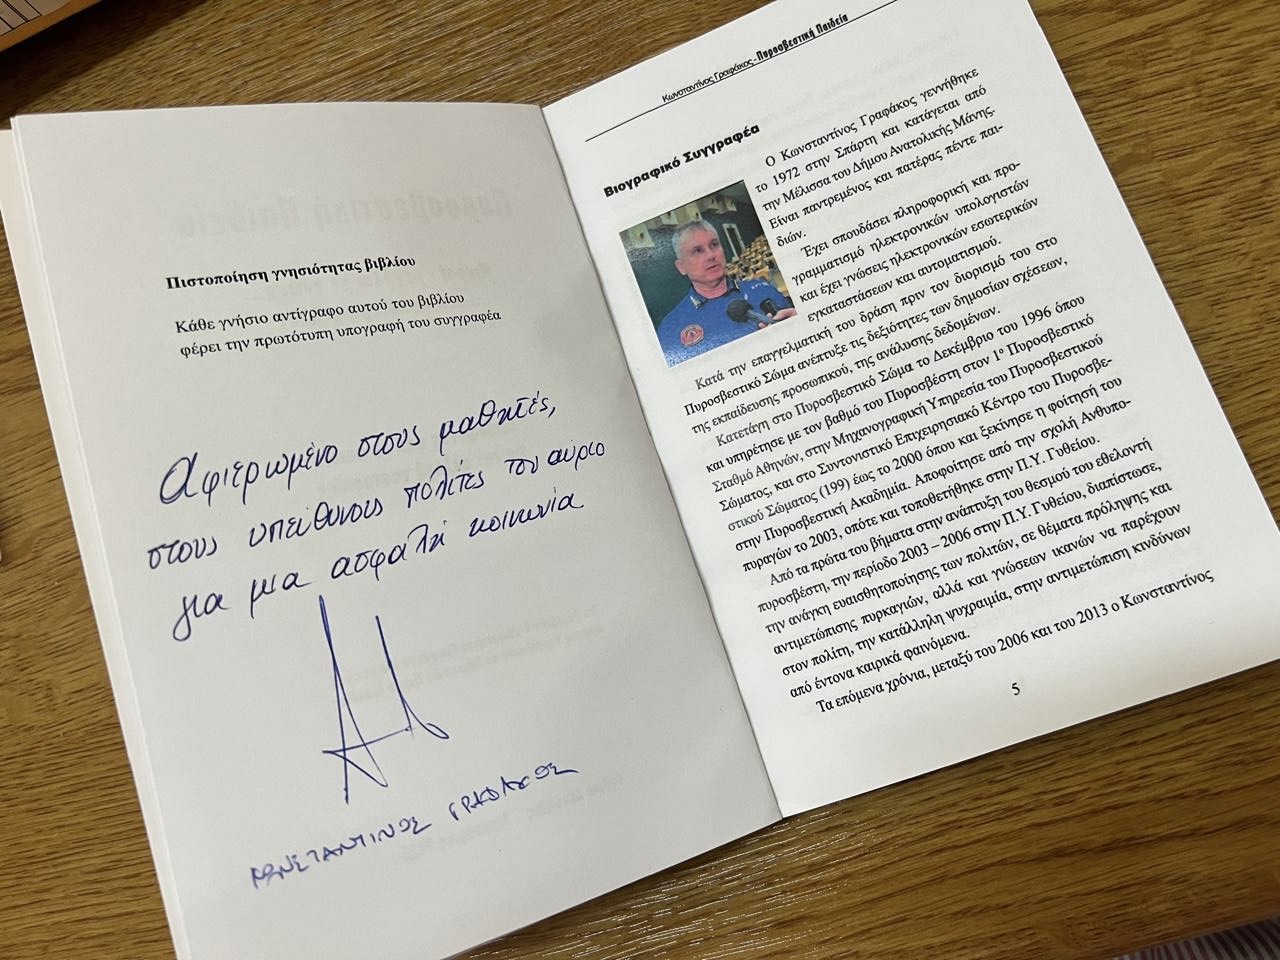 Πιστοποίηση γνησιότητας βιβλίου
Κάθε γνήσιο αντίγραφο αυτού του βιβλίου
φέρει την πρωτότυπη υπογραφή του συγγραφέα
Αφιερωμένο στους μαθητές,
στους υπεύθυνους πολίτες του αύριο
για μια ασφαλή κοινωνία
ΚΩΝΣΤΑΝΤΙΝΟΣ ΓΡΑΦΑΚΟΣ
Κωνσταντίνος Γραφάκος - Πυροσβεστική Παιδεία
Βιογραφικό Συγγραφέα
Ο Κωνσταντίνος Γραφάκος γεννήθηκε
το 1972 στην Σπάρτη και κατάγεται από
την Μέλισσα του Δήμου Ανατολικής Μάνης.
Είναι παντρεμένος και πατέρας πέντε παι-
διών.
Έχει σπουδάσει πληροφορική και προ-
γραμματισμό ηλεκτρονικών υπολογιστών
και έχει γνώσεις ηλεκτρονικών εσωτερικών
εγκαταστάσεων και αυτοματισμού.
Κατά την επαγγελματική του δράση πριν τον διορισμό του στο
Πυροσβεστικό Σώμα ανέπτυξε τις δεξιότητες των δημοσίων σχέσεων,
της εκπαίδευσης προσωπικού, της ανάλυσης δεδομένων.
Κατετάγη στο Πυροσβεστικό Σώμα το Δεκέμβριο του 1996 όπου
και υπηρέτησε με τον βαθμό του Πυροσβέστη στον 1ο Πυροσβεστικό
Σταθμό Αθηνών, στην Μηχανογραφική Υπηρεσία του Πυροσβεστικού
Σώματος, και στο Συντονιστικό Επιχειρησιακό Κέντρο του Πυροσβε-
στικού Σώματος (199) έως το 2000 όπου και ξεκίνησε η φοίτησή του
στην Πυροσβεστική Ακαδημία. Αποφοίτησε από την σχολή Ανθυπο-
πυραγών το 2003, οπότε και τοποθετήθηκε στην Π.Υ. Γυθείου.
Από τα πρώτα του βήματα στην ανάπτυξη του θεσμού του εθελοντή
πυροσβέστη, την περίοδο 2003 – 2006 στην Π.Υ. Γυθείου, διαπίστωσε,
την ανάγκη ευαισθητοποίησης των πολιτών, σε θέματα πρόληψης και
αντιμετώπισης πυρκαγιών, αλλά και γνώσεων ικανών να παρέχουν
στον πολίτη, την κατάλληλη ψυχραιμία, στην αντιμετώπιση κινδύνων
από έντονα καιρικά φαινόμενα.
Τα επόμενα χρόνια, μεταξύ του 2006 και του 2013 ο Κωνσταντίνος
5